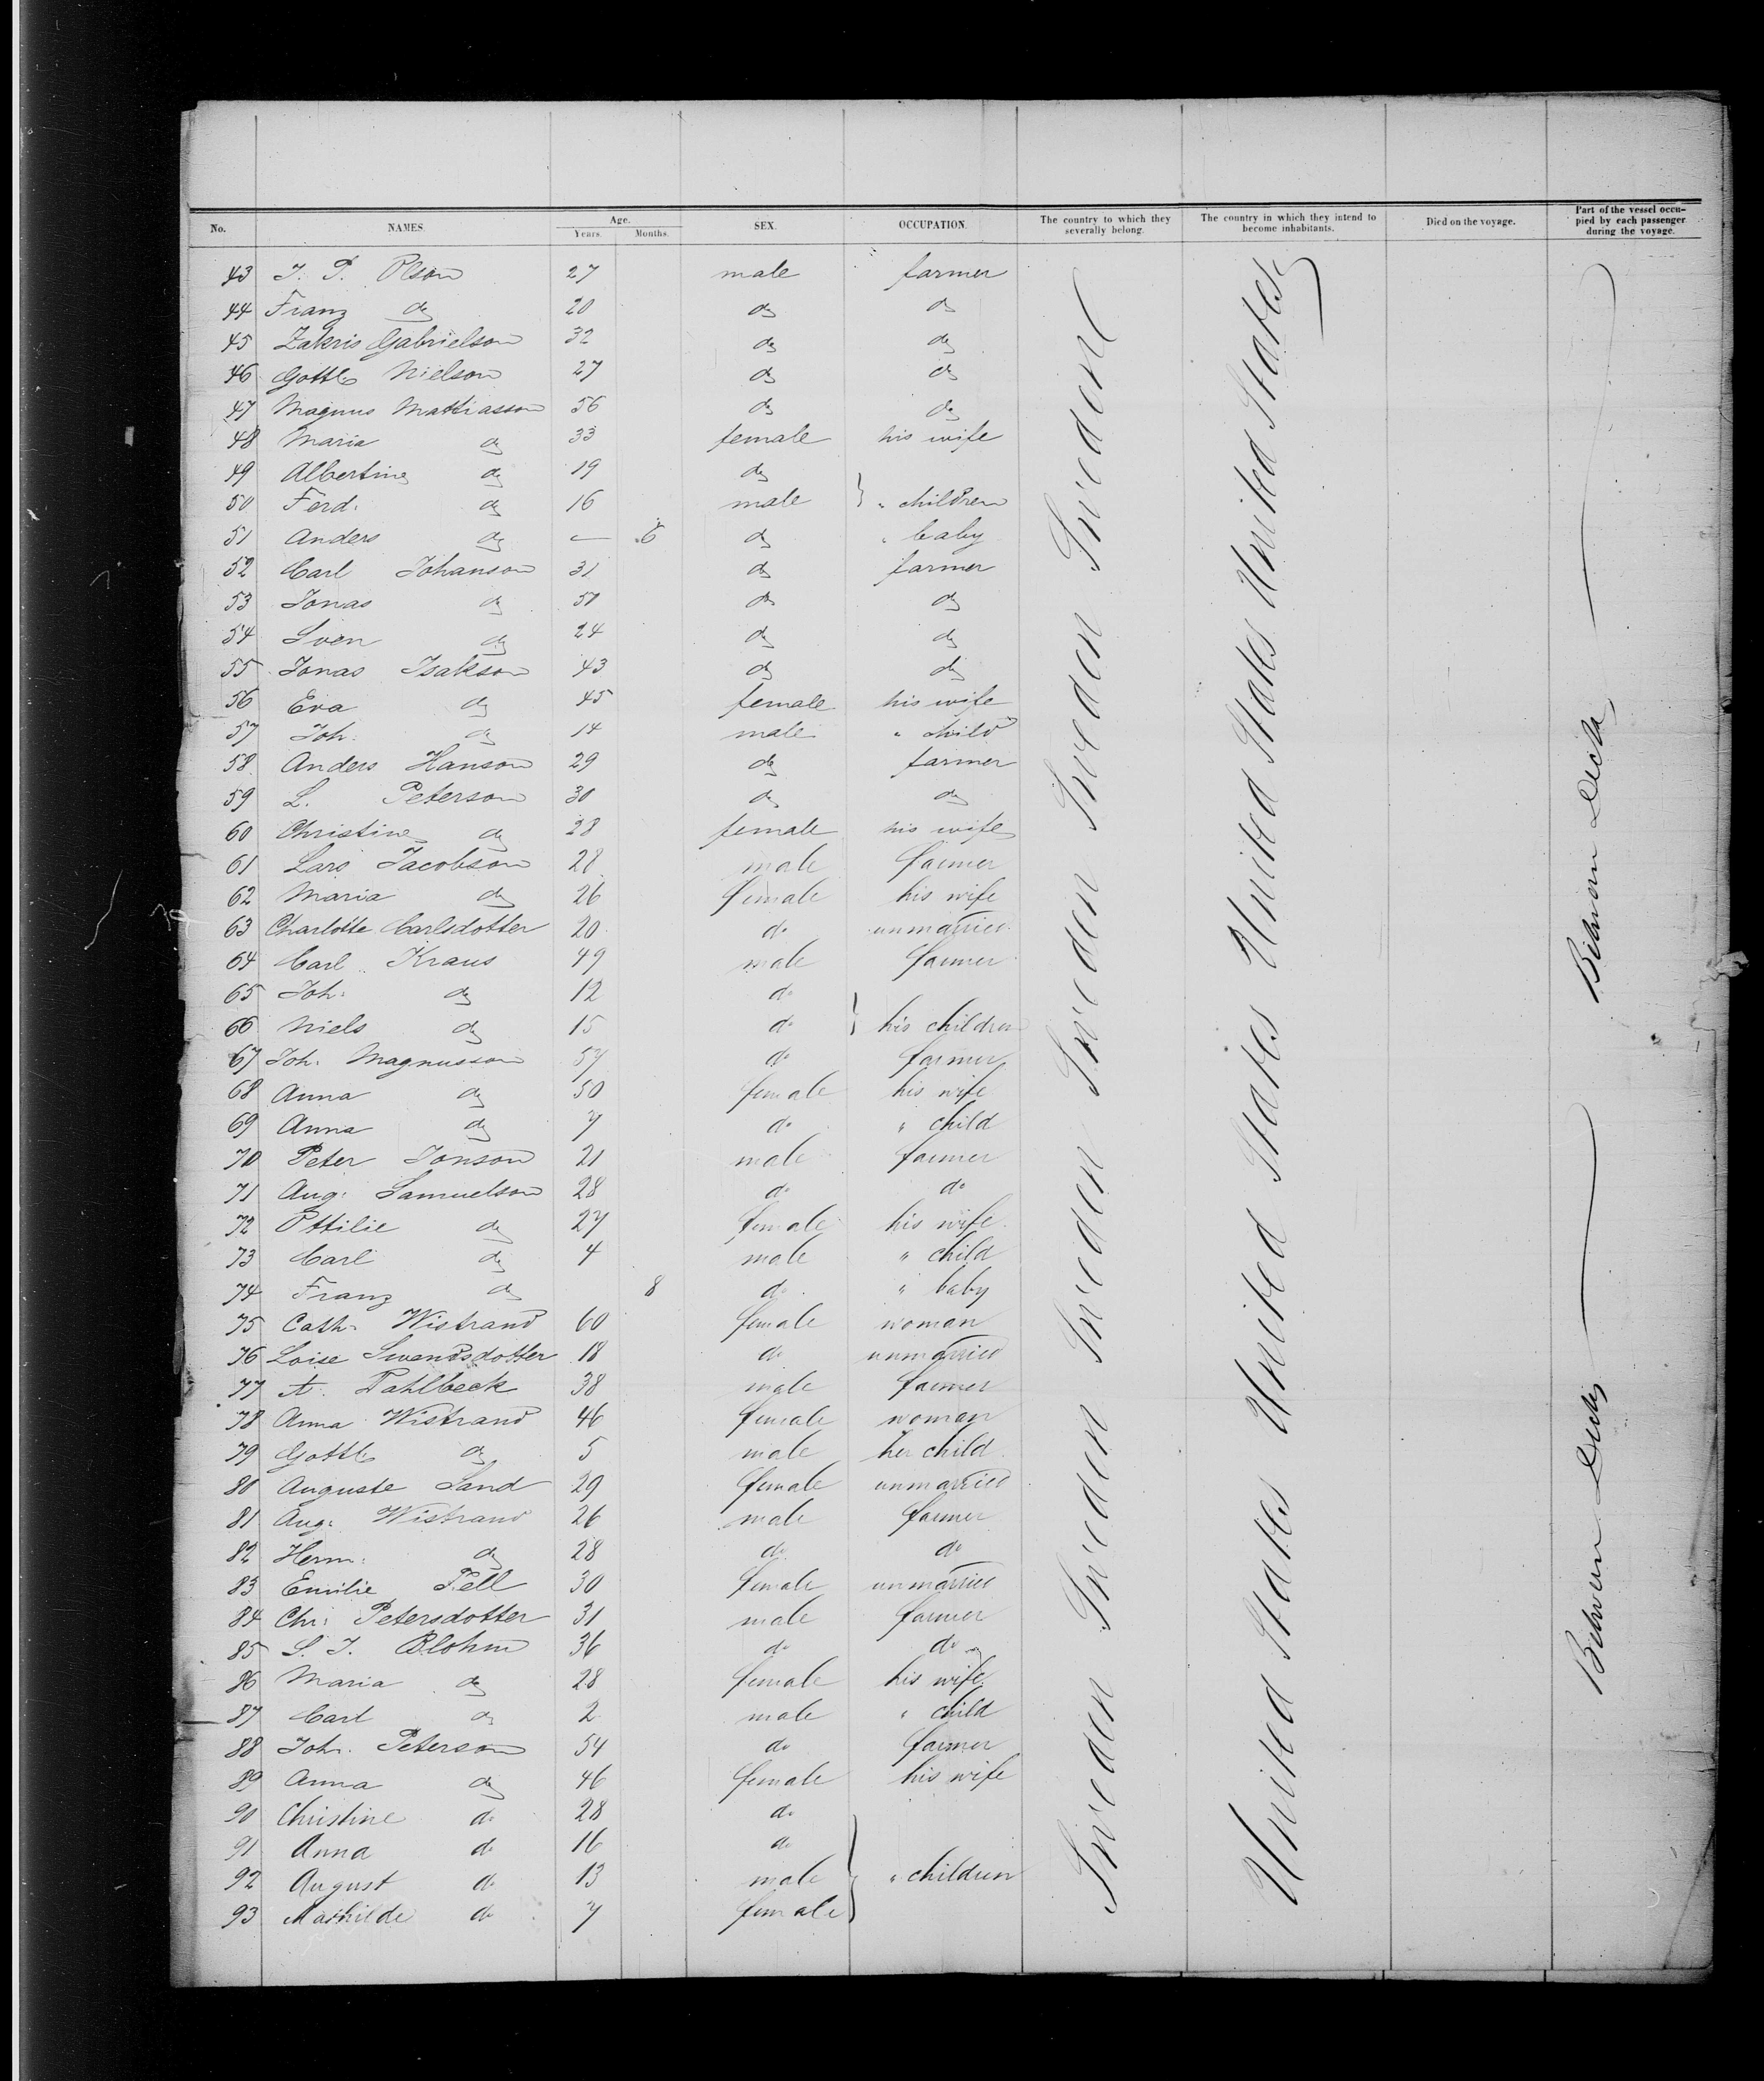 No. NAMES. Age. Years. Months. SEX. OCCUPATION. The country to which they severally belong. The country in which they intend to become inhabitants. Died on the voyage. Part of the vessel occupied by each passenger during the voyage.
43 J. P. Olson 27 male farmer
44 Franz do 20 do do
45 Zakris Gabrielson 32 do do
46 Gottl. Nielson 27 do do
47 Magnus Mattiasson 56 do do
48 Maria do 33 female his wife
49 Albertine do 19 do
50 Ferd. do 16 male } " children
51 Anders do — 6 do " baby
52 Carl Johanson 31 do farmer
53 Jonas do do do
54 Sven do 24 do do
55 Jonas Isakson 43 do do
56 Eva do 45 female his wife
57 Joh. do 14 male " child
58 Anders Hanson 29 do farmer
59 L. Peterson 30 do do
60 Christine do 28 female his wife
61 Lars Jacobson 28 male farmer
62 Maria do 26 female his wife
63 Charlotte Carlsdotter 20 do unmarried
64 Carl Kraus 49 male farmer
65 Joh. do 12 do
66 Niels do 15 do } his children
67 Joh. Magnusson 57 do farmer
68 Anna do 50 female his wife
69 Anna do 7 do " child
70 Peter Jonson 21 male farmer
71 Aug. Samuelson 28 do do
72 Ottilie do 27 female his wife
73 Carl do 4 male " child
74 Franz do 8 do " baby
75 Cath. Wistrand 60 female woman
76 Loise Swendsdotter 18 do unmarried
77 A. Dahlbeck 38 male farmer
78 Anna Wistrand 46 female woman
79 Gottl. do 5 male her child
80 Auguste Sand 29 female unmarried
81 Aug. Wistrand 26 male farmer
82 Herm. do 28 do do
83 Emilie 30 female unmarried
84 Chr. Petersdotter 31 male farmer
85 S. J. Blohm 36 do do
86 Maria do 28 female his wife
87 Carl do 2 male " child
88 Joh. Peterson 54 do farmer
89 Anna do 46 female his wife
90 Christine do 28 do
91 Anna do 16 do
92 August do 13 male } " children
93 Mathilde do 7 female
Sweden Sweden Sweden Sweden Sweden Sweden Sweden
United States United States United States United States United States
Between Deck
Between Deck